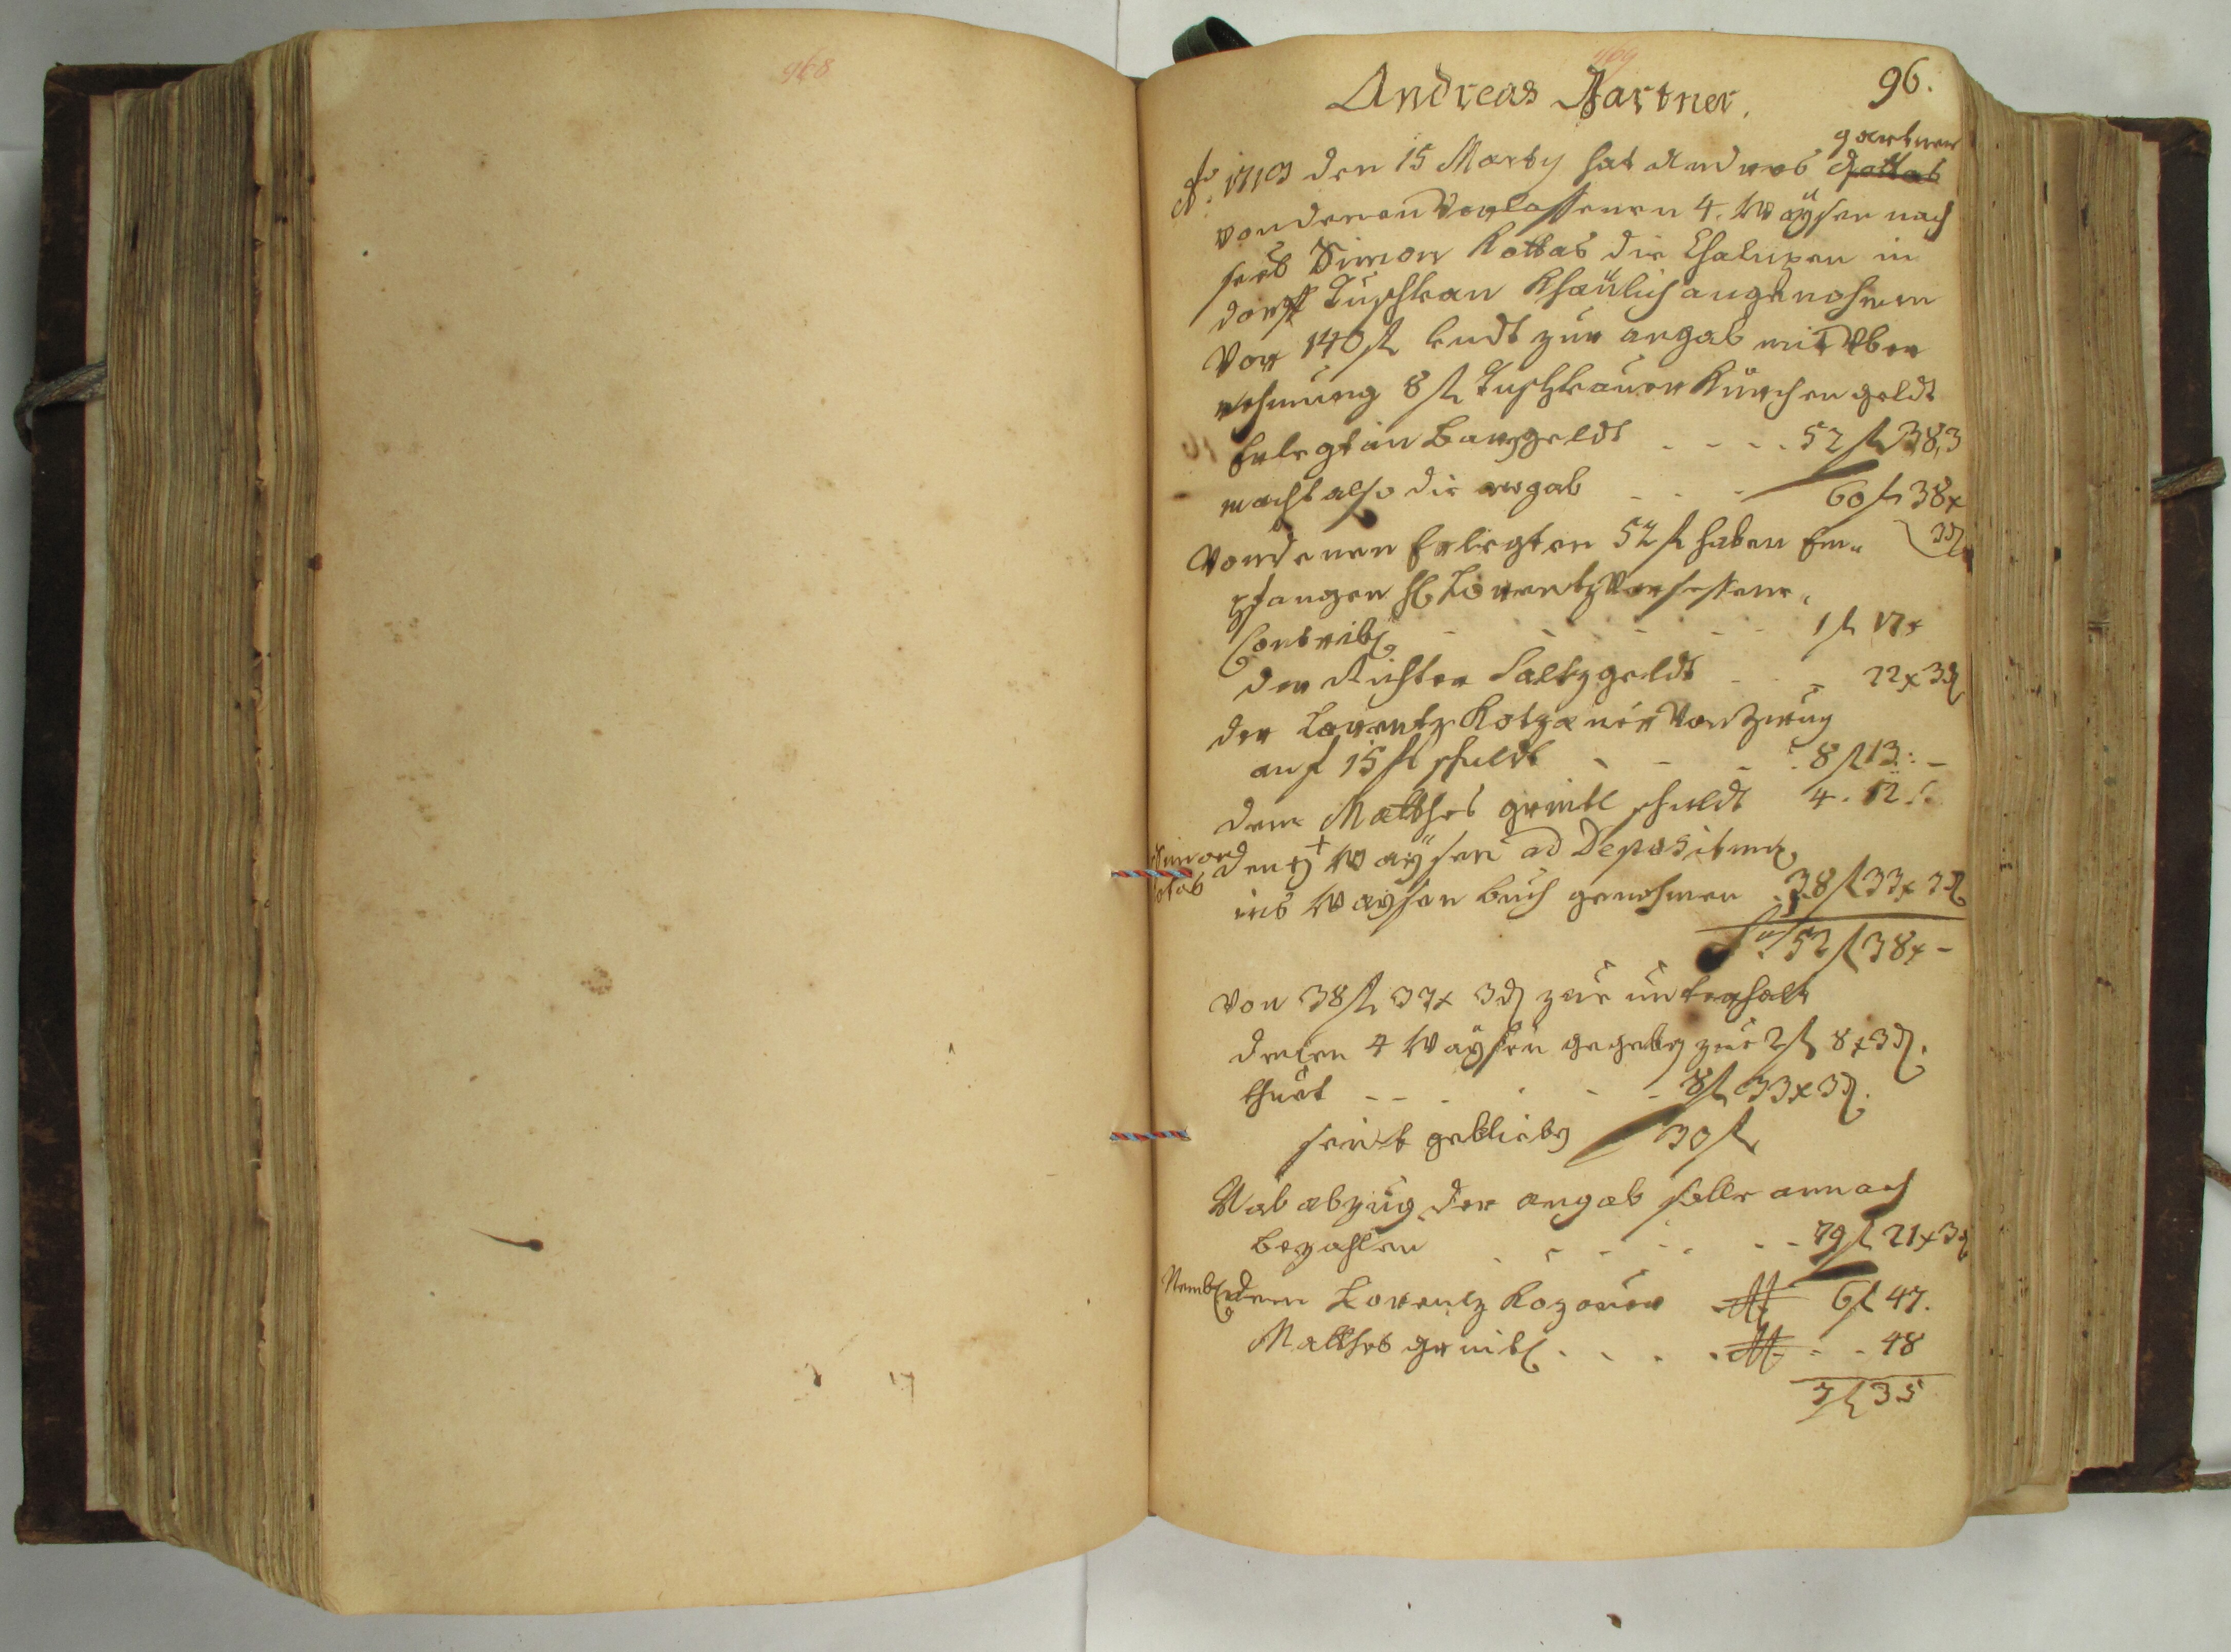 968
969
96.
Andreas Gartner.
gartner
Ao. 1719 den 15 Marty hat Andres Kottas
von denen Verlassenen 4. Waÿsen nach
Simon Kottas die Chalupen in
dorff Tuschkau Khäuflich angenohmen
Vor 140 fl leudt zur angab mit Vber
nehmung 8 fl Tuschkauer Kürchen geldt
Erlegt in Baargeldt - - - - 52 fl 38,3
macht also die angab - - - 60 fl 38 x
3 d
Von denen Erlegten 52 fl haben Em-
pfangen Lorentz Versessene
Contrib - - - - - - 1 fl 17 x
der Richter Saltzgeldt - - - 22 x 3 d
der Lorentz Kotzauer Von Zwug
auf 15 fl schuldt - - - 8 fl 13 : -
dem Matthes schuldt 4 . 12
Simon
Kotas
den 4 + Waÿsen ad Depositum
ins Waÿsen buch genohmen . 38 fl 33 x 3 d
52 fl 38 x -
Von 38 fl 33 x 3 d zur unterhalt
denen 4 Waÿsen gegeben zue 2 fl 8 x 3 d.
thuet - - - - - 8 fl 33 x 3 d.
seindt geblieben 30 fl
Nab abzug der angab solle annoch
bezahlen - - - - - - 79 fl 21 x 3 d
Nembl dem Lorentz Kozauer 6 fl 47.
Matthes . . . . - - 48
7 fl 35